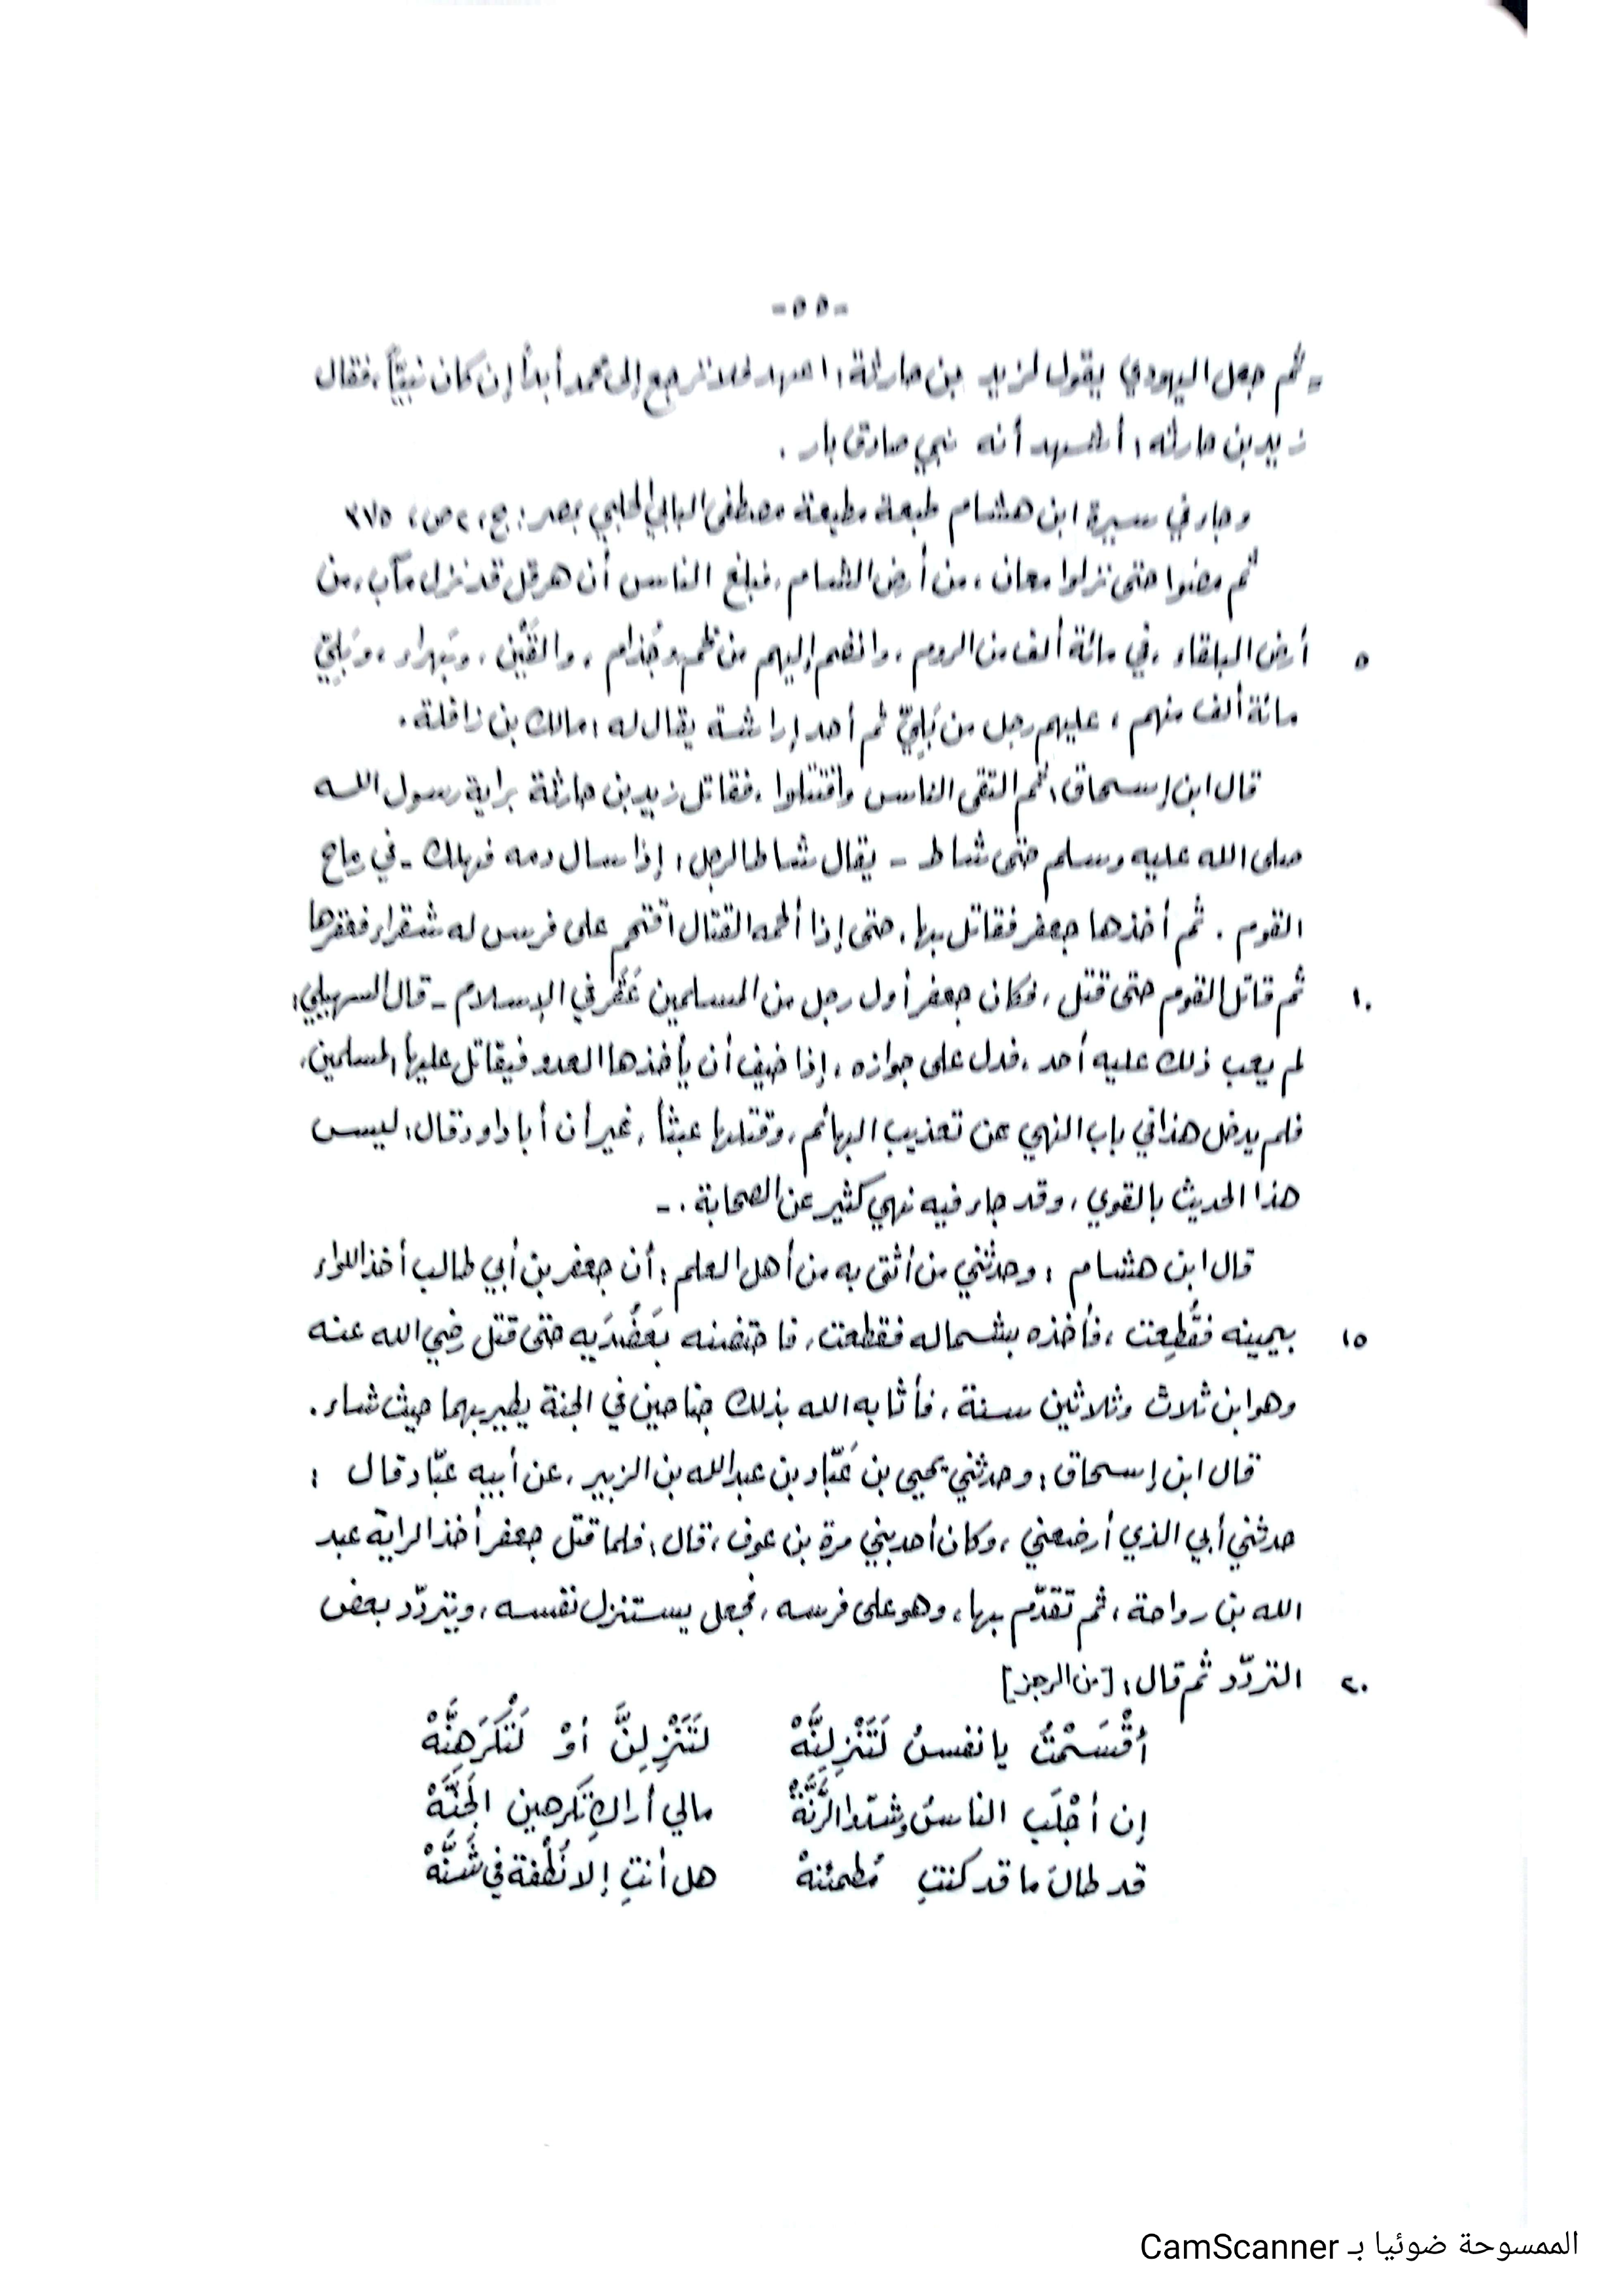 -٥٥-
= ثم جعل اليهودي يقول لزيد بن حارثة: اعهد فلا ترجع إلى محمد أبداً إن كان نبيّاً، فقال
زيد بن حارثه: أشهد أنه نبي صادق بار .
وجاء في سيرة ابن هشام طبعة مطبعة مصطفى البابي الحلبي بمصر: ج، ٢ ص، ٣٧٥
ثم مضوا حتى نزلوا معان، من أرض الشام، فبلغ الناس أن هرقل قد نزل مآب، من
٥ أرض البلقاء، في مائة ألف من الروم، وانضم إليهم من لخم وجُذام، والقَيْن، وبَهراء، وبَلِيّ
مائة ألف منهم، عليهم رجل من بَلِيّ ثم أحد إراشة يقال له: مالك بن زافلة.
قال ابن إسحاق: ثم التقى الناس واقتتلوا، فقاتل زيد بن حارثة براية رسول الله
صلى الله عليه وسلم حتى شاط - يقال شاط الرجل: إذا سال دمه فهلك - في رماح
القوم . ثم أخذها جعفر فقاتل بها، حتى إذا ألحمه القتال اقتحم على فرس له شقراء فعقرها
١٠ ثم قاتل القوم حتى قتل، فكان جعفر أول رجل من المسلمين عَقَر في الإسلام - قال السهيلي:
لم يعب ذلك عليه أحد، فدل على جوازه، إذا خيف أن يأخذها العدو فيقاتل عليها المسلمين،
فلم يدخل هذا في باب النهي عن تعذيب البهائم، وقتلها عبثاً، غير أن أبا داود قال: ليس
هذا الحديث بالقوي، وقد جاء فيه نهي كثير عن الصحابة . -
قال ابن هشام : وحدثني من أثق به من أهل العلم: أن جعفر بن أبي طالب أخذ اللواء
١٥ بيمينه فقُطِعت، فأخذه بشماله فقطعت، فاحتضنه بعَضُدَيه حتى قتل رضي الله عنه
وهو ابن ثلاث وثلاثين سنة، فأثابه الله بذلك جناحين في الجنة يطير بهما حيث شاء.
قال ابن إسحاق: وحدثني يحيى بن عَبّاد بن عبد الله بن الزبير، عن أبيه عبّاد قال :
حدثني أبي الذي أرضعني، وكان أحد بني مرة بن عوف، قال: فلما قتل جعفر أخذ الراية عبد
الله بن رواحة، ثم تقدّم بها، وهو على فرسه، فجعل يستنزل نفسه، ويتردّد بعض
٢٠ التردّد ثم قال: [من الرجز]
أقْسَمْتُ يا نفسُ لَتَنْزِلِنَّهْ لَتَنْزِلِنَّ أوْ لَتُكْرَهِنَّهْ
إن أجْلَبَ الناسُ وشدّوا الرَّنَّهْ مالي أراكِ تكرهين الجَنَّهْ
قد طالَ ما قد كنتِ مُطمئنهْ هل أنتِ إلا نُطْفة في شَنَّهْ
الممسوحة ضوئيا بـ CamScanner